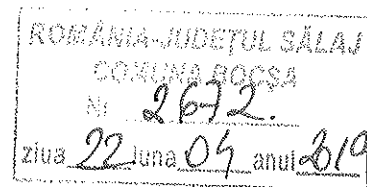 ROMÂNIA-JUDEȚUL SĂLAJ
COMUNA BOCȘA
Nr 2672.
ziua 22 luna 04 anul 2019